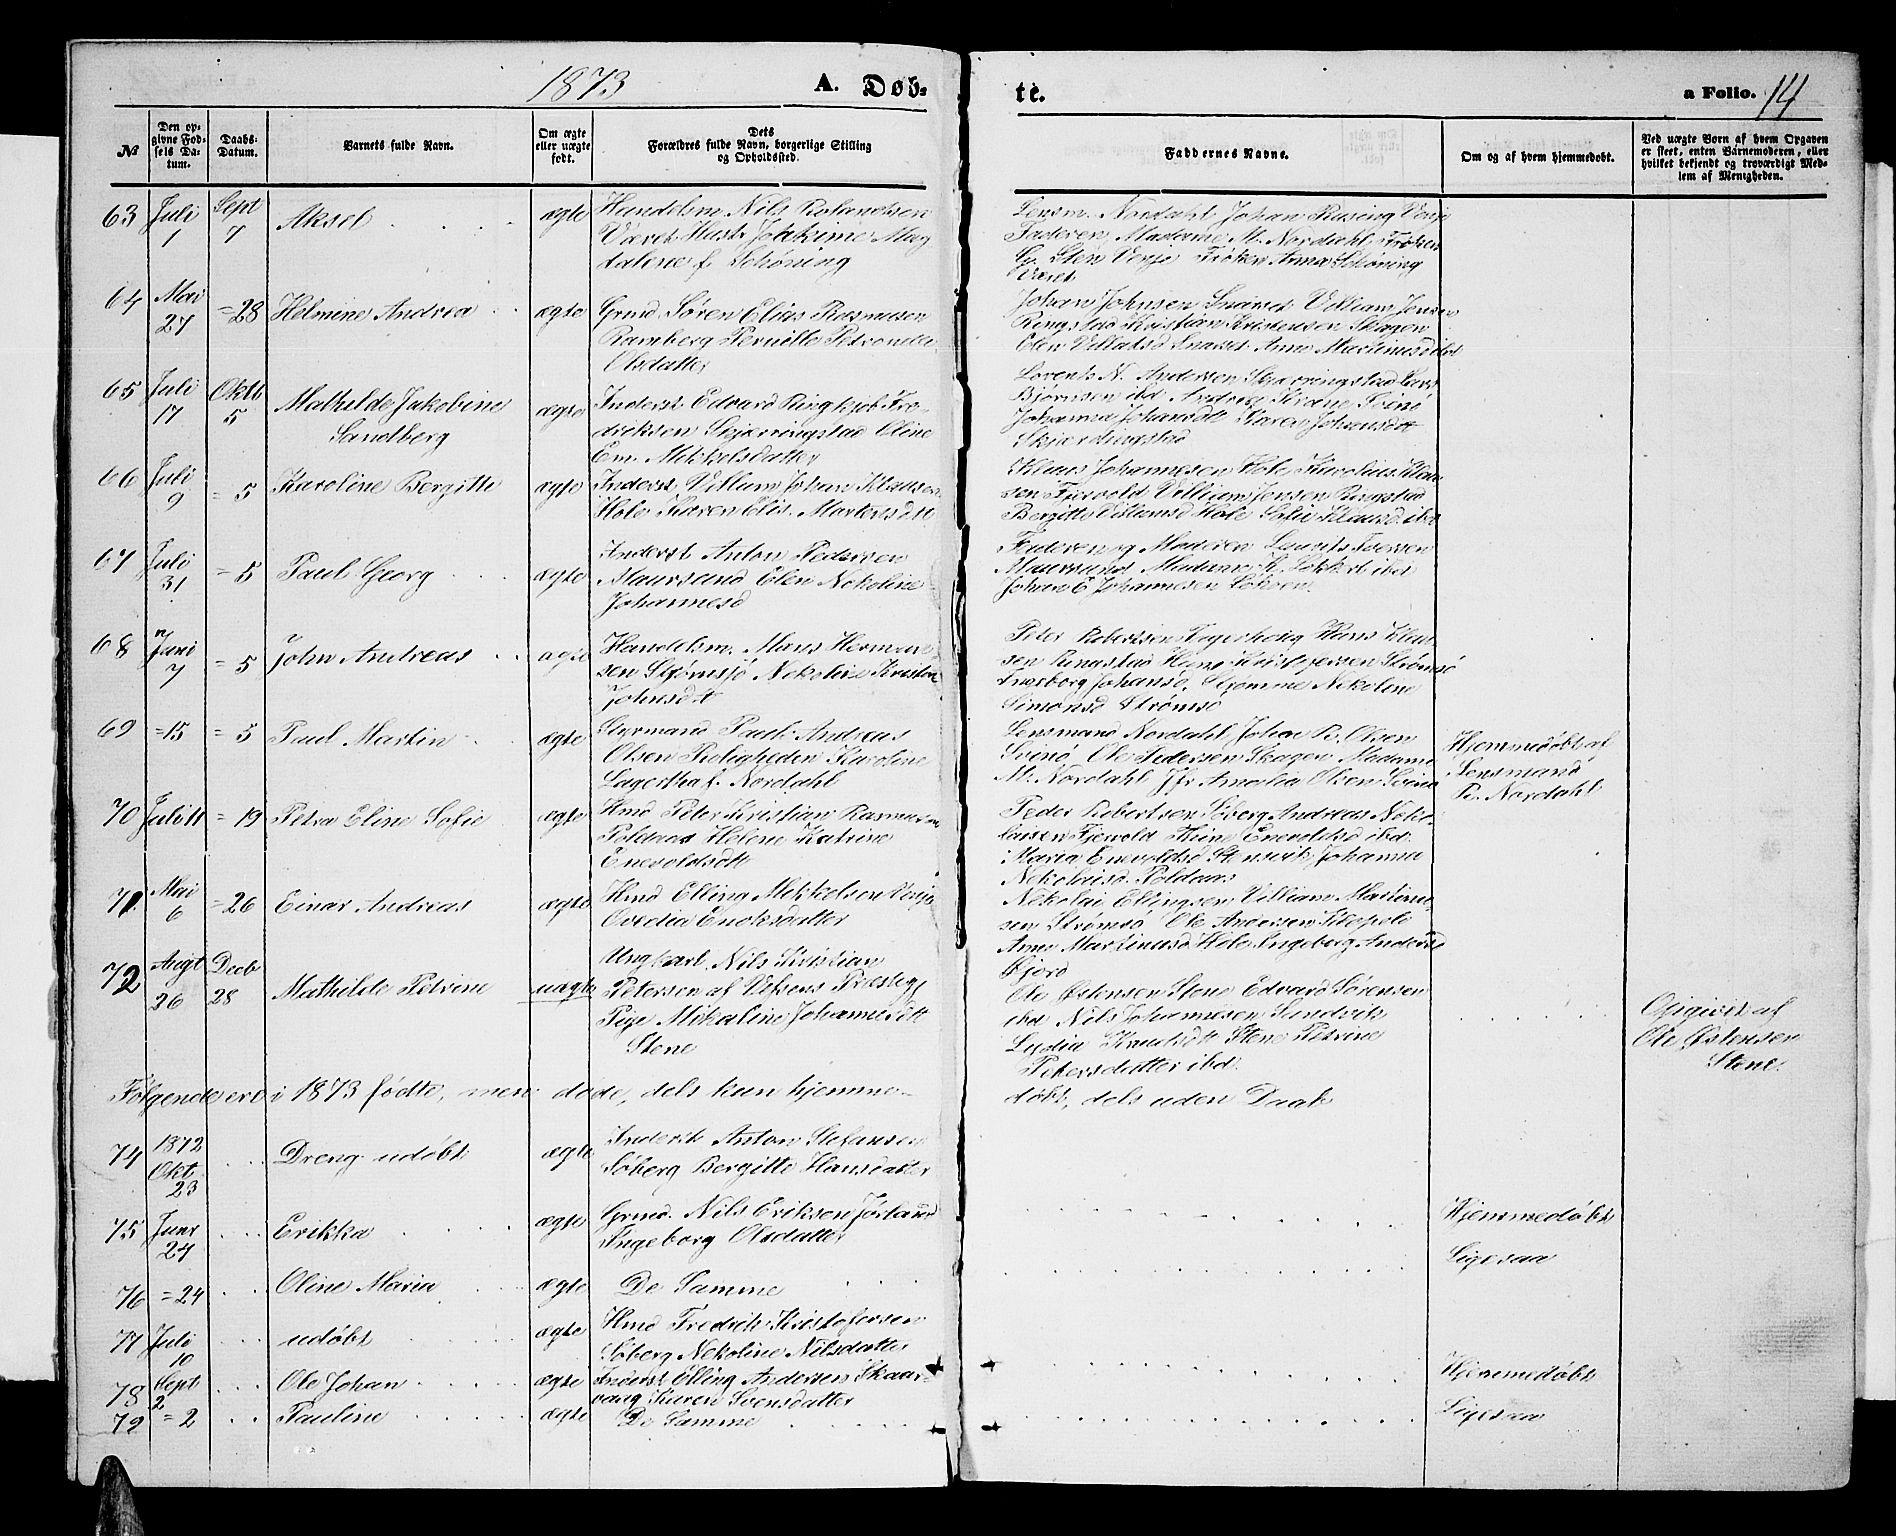 1873
A. Døb-
te.
a Folio. 14
№
Den op-
givne Fød-
sels Da-
tum.
Daabs-
Datum.
Barnets fulde Navn.
Om ægte
eller uægte
født.
Dets
Forældres fulde Navn, borgerlige Stilling
og Opholdssted.
Faddernes Navne.
Om og af hvem hjemmedøbt.
Ved uægte Børn af hvem Opgaven
er skeet, enten Barnemoderen, eller
hvilket bekjendt og troværdigt Med-
lem af Menigheden.
63 Juli 1 Sept 7 Aksel ægte
Handelsm. Nils Rolandsen
Været Hust. Johkime Mag
dalene f. Schøning
Lensm. Nordahl Johan Rusing Venje
Faderen, Madame M. Nordahl Frøken
G. Sten Venje Frøken Anna Schøning
Været
64 Mai 27 =28 Helmine Andrea ægte
Grmd Søren Elias Rasmusen
Ramberg Pernille Petronela
Olsdatter
Johan Johnsen Snarset Villiam Jensen
Ringstad Kristian Kristensen Skagen
Elen Villadsd Snarset Anne Martinusd ibd
65 Juli 17 Oktb 5 Mathilde Jakobine
Sandberg ægte
Inderst Edvard Ringkjøb Fre-
driksen Skjærringstad Oline
Em. Mikkelsdatter
Lorents N. Andersen Skjærringstad Lars
Bjørnsen ibd Andreas Krane Svinø
Johanna Johansdt Karen Johansdt
Skjerdingstad
66 Juli 9 = 5 Karoline Bergitte ægte
Inderst Villum Johan Klausen
Hole Karen Elis. Mortensdt
Klaus Johannesen Hole Karolius Klau
sen Fjervold Villiam Jensen Ringstad
Bergitte Villumsd Hole Sofie Klausd. ibd
67 Juli 31 = 5 Paul Georg ægte
Inderst Anton Pedersen
Maursund Elen Nekoline
Johannesd
Faderen og Moderen Laurits Iversen
Maursund Madam K. Lokkert ibd
Johan E Johannesen
68 Juni 7 = 5 John Andreas ægte
Handelsm. Mons Herman
sen Strømsjø Nekoline Kristine
Johnsdt
Peter Robertsen Fagerhoug Hans Klau
sen Ringstad Hans Kristofersen Strømsø
Ingeborg Johansd. Strømme Nekoline
Simonsd Strømsø
69 =15 = 5 Paul Martin ægte
Styrmand Paul Andreas
Olsen Roligheden Karoline
Lagertha f. Nordahl
Lensmand Nordahl Johan B. Olsen
Svinø Ole Pedersen Skagen Madame
M. Nordahl Jfr Amalia Olsen Svinø
Hjemmedøbt af
Lensmand
B. Nordahl
70 Juli 11 =19 Petra Eline Sofie ægte
Hmd Peter Kristian Rasmusen
Poldaas Helene Katrine
Enevoldsdt
Peder Robertsen Søberg Andreas Neko-
laisen Fjervold Trine Enevoldsd ibd.
Maria Enevoldsd Stensvik Johanna
Nekolaisd. Poldaas
71 Mai 6 =26 Einar Andreas ægte
Hmd Elling Mikkelsen Venje
Ovedia Enoksdatter
Nekolai Ellingsen Villiam Martinu-
sen Strømsø Ole Andersen
Anne Martinusd Hole Ingeborg Andersd
Fjord
72 Augt 26 Decb 28 Mathilde Petrine uægte
Ungkarl Nils Kristian
Petersen af Vefsens Præstegj
Pige Mikaline Johannesdt
Stene
Ole Østensen Stene Edvard Sørensen
ibd Nils Johannesen Sandvik
Lydia Knudsdt Stene Petrine
Petersdatter ibd.
Opgivet af
Ole Østensen
Stene.
Følgende ere i 1873 fødte, men døde, dels kun hjemme-
døbt, dels uden Daab
74 1872 Okt. 23 Dreng udøbt ægte
Inderst Anton Stefansen
Søberg Bergitte Hansdatter
75 Juni 24 Erikka ægte
Grmd. Nils Eriksen Jørland
Ingeborg Olsdatter
Hjemmedøbt
76 =24 Oline Maria ægte
De Samme
Ligesaa
77 Juli 10 udøbt ægte
Hmd Fredrik Kristofersen
Søberg Nekoline Nilsdatter
78 Sept 2 Ole Johan ægte
Inderst Elling Andersen Skaar-
vaag Karen Svensdatter
Hjemmedøbt
79 = 2 Pauline ægte
De Samme
Ligesaa